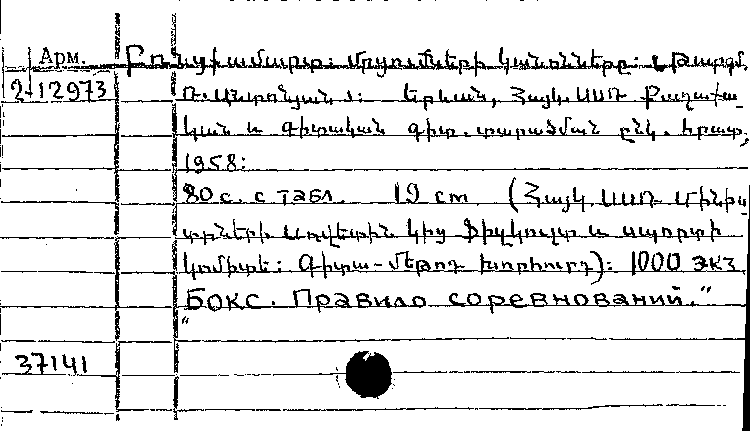 Арм.
Բռնցքամարտ: Մրցումների կանոնները: [Թարգմ.
2-12973
Ռ. Անտոնյան]: Երևան, Հայկ. ՍՍՌ Քաղաքա-
կան և գիտական գիտ. տարածման ընկ. հրատ,
1958:
80 с. с табл. 19 cm (Հայկ. ՍՍՌ Մինիս
տրների Սովետին կից Ֆիզկուլտ և սպորտի
կոմիտե: Գիտա-մեթոդ խորհուրդ): 1000 экз
"Бокс. Правило соревнований."
37141